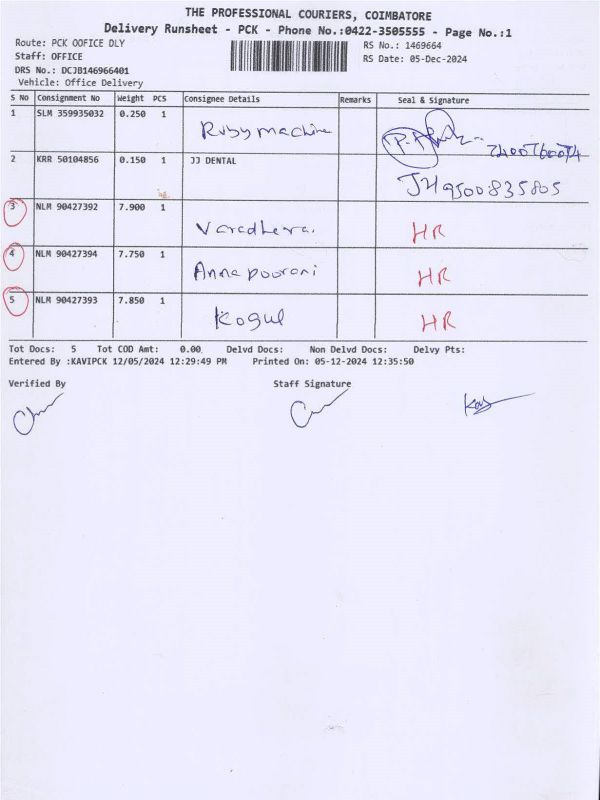 THE PROFESSIONAL COURIERS, COIMBATORE
Delivery Runsheet - PCK - Phone No.:0422-3505555 - Page No.:1
Route: PCK OOFICE DLY
RS No.: 1469664
Staff: OFFICE
RS Date: 05-Dec-2024
DRS No.: DCJB146966401
Vehicle: Office Delivery
S No Consignment No Weight PCS Consignee Details Remarks Seal & Signature
1 SLM 359935032 0.250 1 Ruby machine
2 KRR 50104856 0.150 1 JJ DENTAL
JJ 9500835805
3 NLM 90427392 7.900 1 HR
4 NLM 90427394 7.750 1 Annapoorani HR
5 NLM 90427393 7.850 1 Kogul HR
Tot Docs: 5 Tot COD Amt: 0.00 Delvd Docs: Non Delvd Docs: Delvy Pts:
Entered By :KAVIPCK 12/05/2024 12:29:49 PM Printed On: 05-12-2024 12:35:50
Verified By Staff Signature